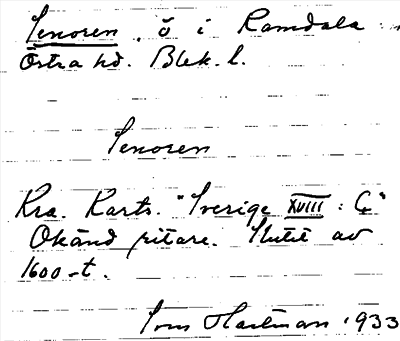 Senoren, ö i Ramdala
Östra hd. Blek. l.
Senoren
Kra. Kartv. "Sverige XVIII: C"
Okänd ritare. Slutet av
1600-t.
Tom Hartman 1933